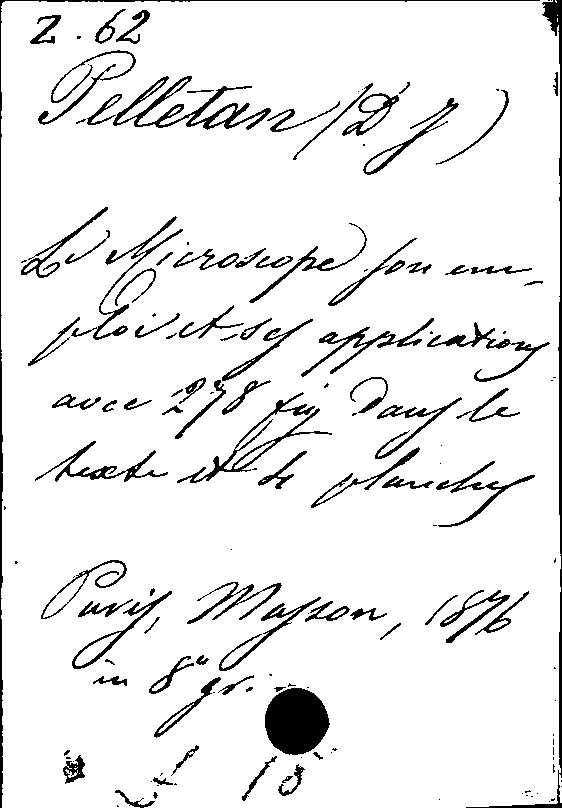 Z. 62
Pelletan (D J)
Le Microscope son em-
ploi et ses applications
avec 278 fig Dans le
texte et de planches
Paris, Masson, 1876
in 8° gr.